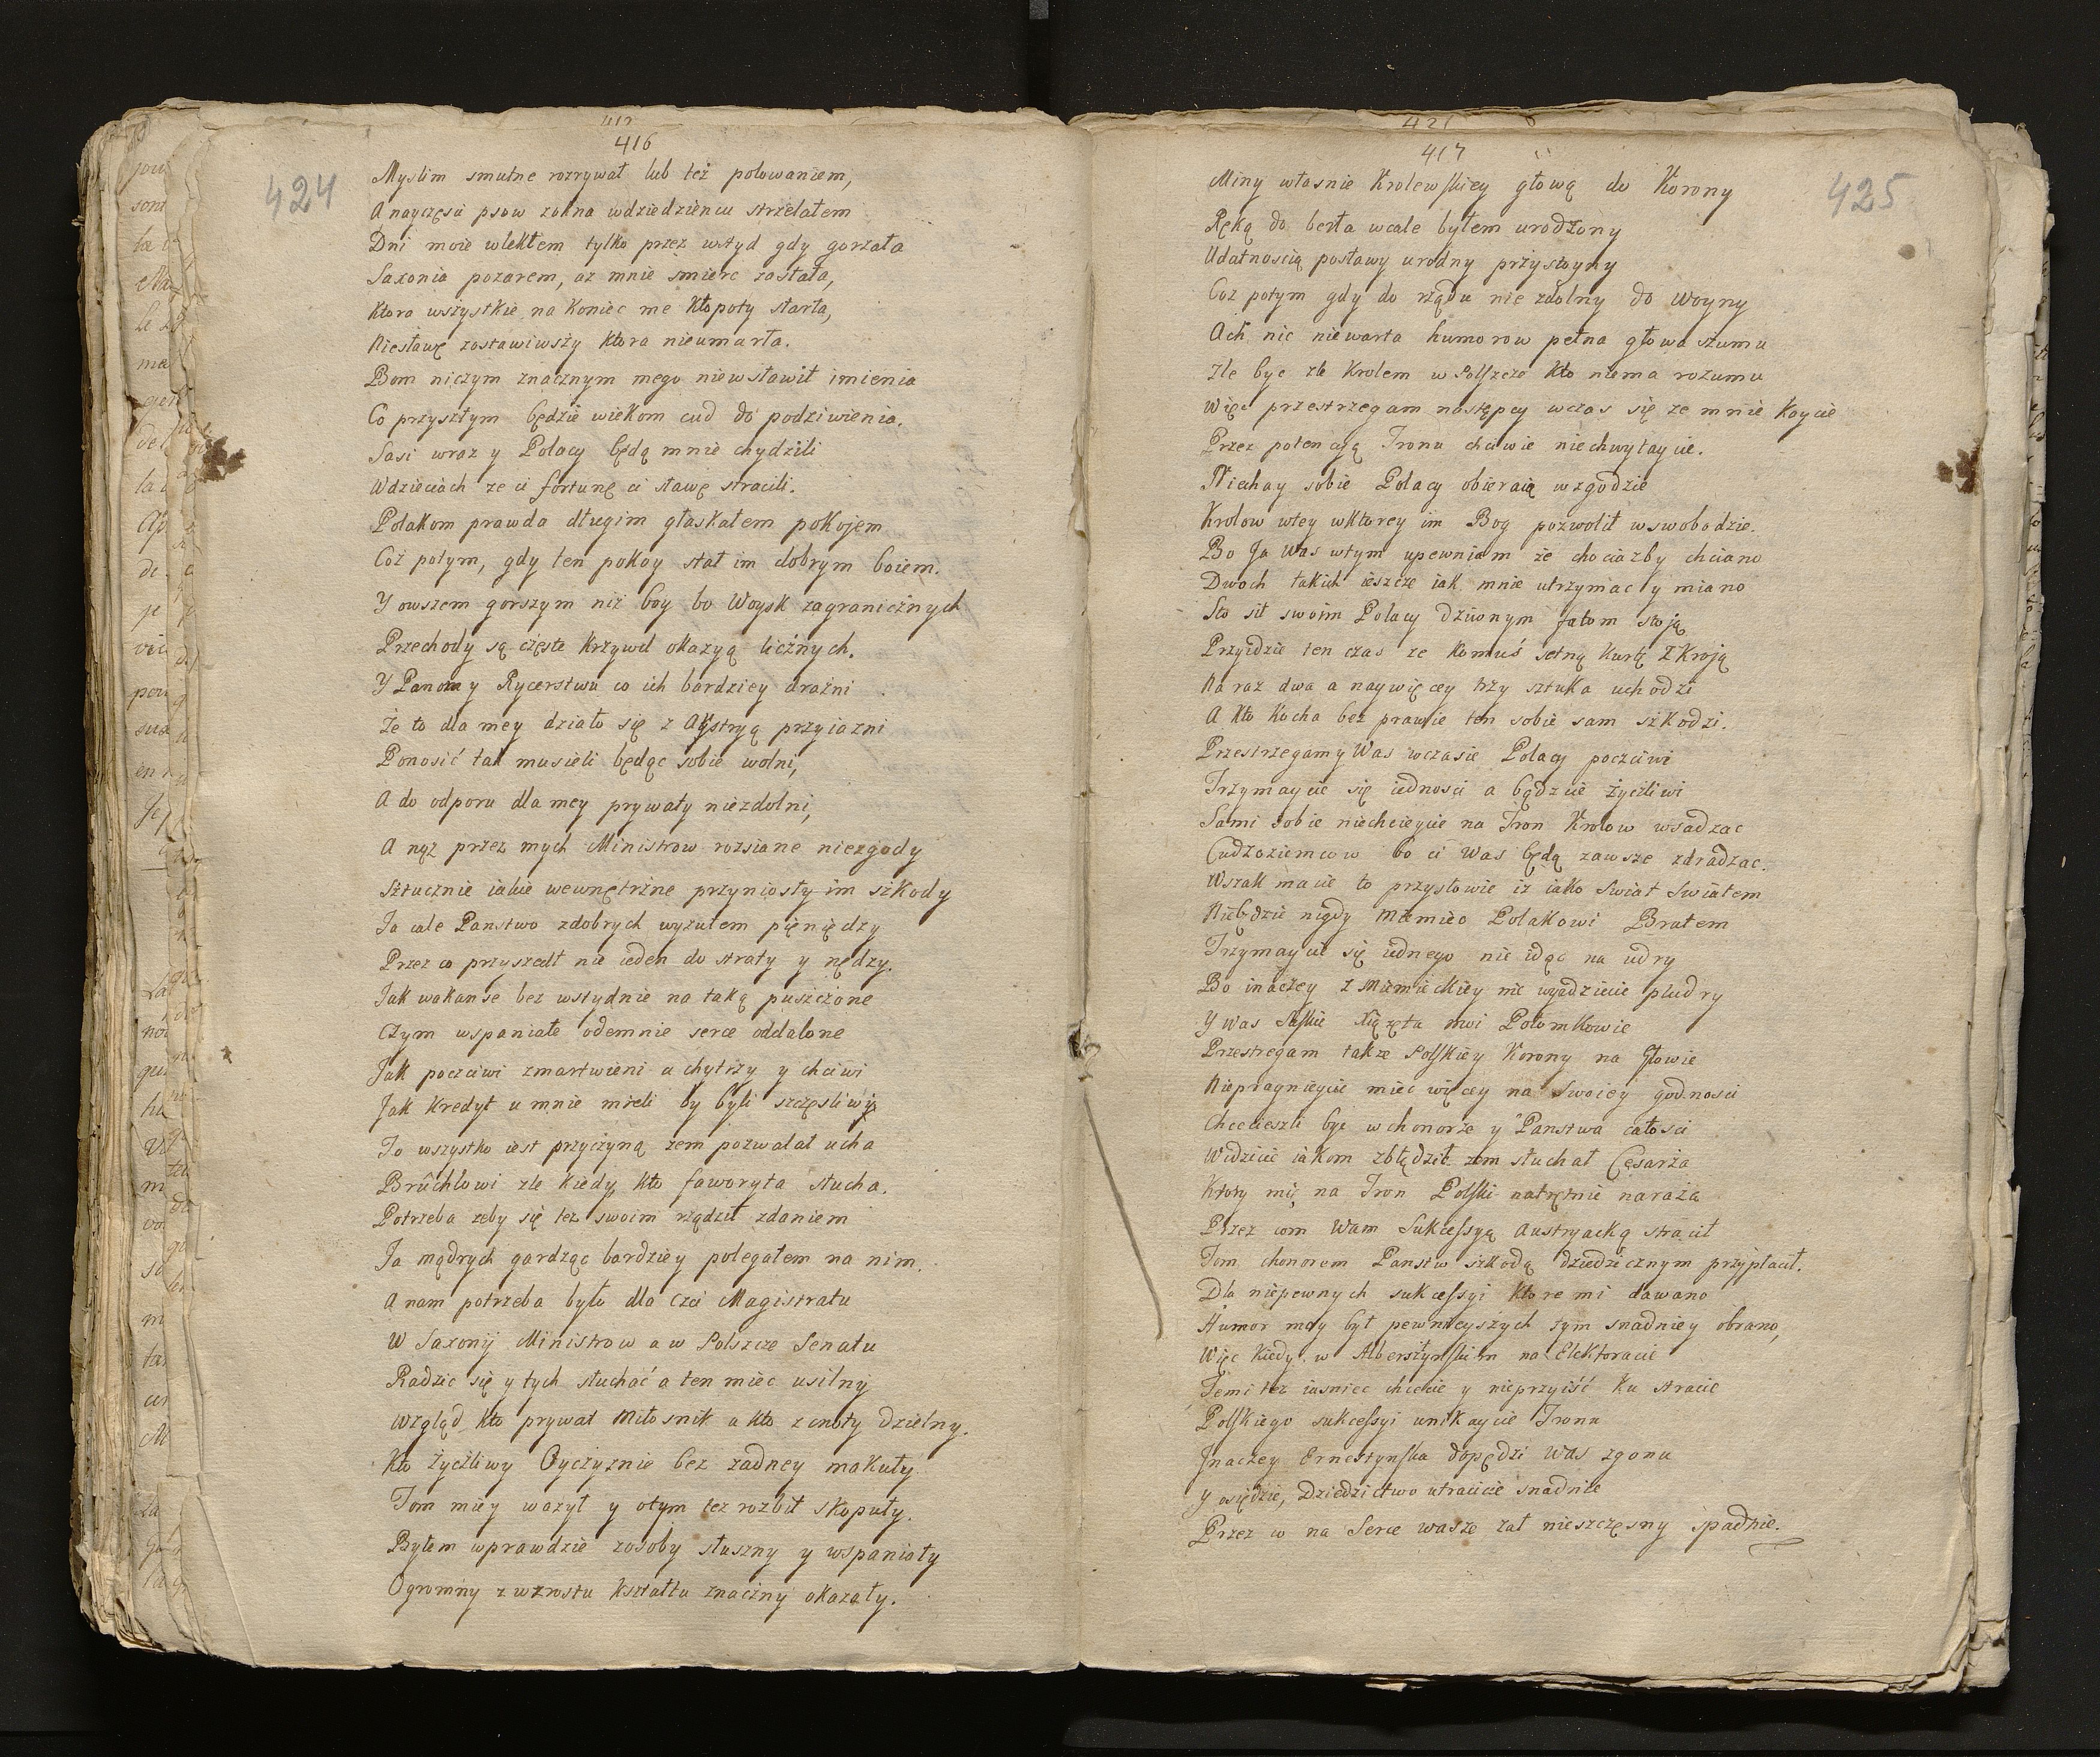 416
424
Myslim smutne rozrywał lub też polowaniem,
A nayczęsci psow zokna wdziedziencu strzelałem
Dni moie wlekłem tylko przez wstyd gdy gorzała
Saxonia pozarem, az mnie smierc zostala,
Ktora wszystkie na koniec me kłopoty starła,
Niesławę zostawiwszy ktora nieumarła.
Bom niczym znacznym mego niewsławił imienia
Co przyszłym będzie wiekom cud do podziwienia.
Sasi wraz y Polacy będą mnie chydzili
Wdzieciach ze ci fortunę ci sławę stracili.
Polakom prawda długim głaskałem pokojem
Coż potym, gdy ten pokoy stał im dobrym boiem.
Y owszem gorszym niż boy bo Woysk zagranicznych
Przechody są częste krzywd okazyą licznych.
Y Panom y Rycerstwu co ich bardziey drażni
Że to dla mey działo się z Austryą przyiazni
Ponosić tak musieli będąc sobie wolni,
A do odporu dla mey prywaty niezdolni,
A nąz przez mych Ministrow rozsiane niezgody
Sztucznie iakie wewnętrzne przyniosły im szkody
Ja całe Panstwo zdobrych wyzułem pięniędzy
Przez co przyszedł nie ieden do straty y nędzy.
Jak wakanse bez wstydnie na taką puszczone
Czym wspaniałe odemnie serce oddalone
Jak poczciwi zmartwieni a chytrzy y chciwi
Jak kredyt u mnie mieli by byli szczęsliwi
To wszystko iest przyczyną żem pozwalał ucha
Brûchlowi zle kiedy kto faworyta słucha.
Potrzeba zeby się tez swoim rządził zdaniem
Ja mądrych gardząc bardziey polegałem na nim.
A nam potrzeba było dla Czci Magistratu
W Saxonij Ministrow a w Polszcze Senatu
Radzic się y tych słuchać a ten miec usilny
Wzgląd kto prywat Miłosnik a kto z cnoty dzielny.
Kto życzliwy Oyczyznie bez zadney makuły
Tom miey ważył y otym tez rozbił skopuły.
Byłem wprawdzie zosoby słuszny y wspaniały
Ogromny z wzrostu kształtu znaczny okazały.
417
425
Miny własnie Krolewskiey głową do Korony
Ręką do berła wcale byłem urodzony
Udatnoscią postawy urodny przystoyny
Coz potym gdy do rządu nie zdolny do woyny
Ach nic niewarta humorow pełna głowa szumu
Zle byc zle Krolem w Polszcze kto niema rozumu
Więc przestrzegam następcy wczas się ze mnie kaycie
Przez potencyą Tronu chciwie niechwytaycie.
Niechay sobie Polacy obieraią wzgodzie
Krolow wtey wktorey im Bog pozwolił wswobodzie.
Bo Ja Was wtym upewniam że chociazby chciano
Dwoch takich ieszcze iak mnie utrzymac y miano
Sto sił swoim Polacy dziwnym fatom stoją
Przyidzie ten czas ze komuś setną kurtę zkroją
Na raz dwa a naywięcey trzy sztuka uchodzi
A kto kocha bez prawie ten sobie sam szkodzi.
Przestrzegamy Was wczasie Polacy poczciwi
Trzymaycie się iednosci a bądzcie życzliwi
Sami sobie niechcieycie na Tron Krolow wsadzac
Cudzoziemcow bo ci Was będą zawsze zdradzac.
Wszak macie to przysłowie iz iako Swiat Swiatem
Niebędzie nigdy Niemiec Polakowi Bratem
Trzymaycie się iednego nie idąc na udry
Bo inaczey z Niemieckiey nie wyidziecie pludry
Y was Saskie Xiązęta moi Potomkowie
Przestregam takze Polskiey Korony na Głowie
Niepragnieycie miec więcey na Swoiey godnosci
Chceciesli byc w chonorze y Panstwa całosci
Widzicie iakom zbłędził zem słuchał Cesarza
Ktory mię na Tron Polski natrętnie naraża
Przez com Wam Sukcessyą Austryacką stracił
Tom chonorem Panstw szkodą dziedzicznym przypłacił.
Dla niepewnych sukcessyi ktore mi dawano
Humor moy był pewnieyszych tym snadniey obrano,
Więc kiedy w Alberstynskim na Elektoracie
Temi tez iasniec chcecie y nieprzyiść ku stracie
Polskiego sukcessyi unikaycie Tronu
Jnaczey Ernestynska dopędzi was zgonu
Y osiędzie, Dziedzictwo utracicie snadnie
Przez co na Serce wasze zal nieszczęsny spadnie.